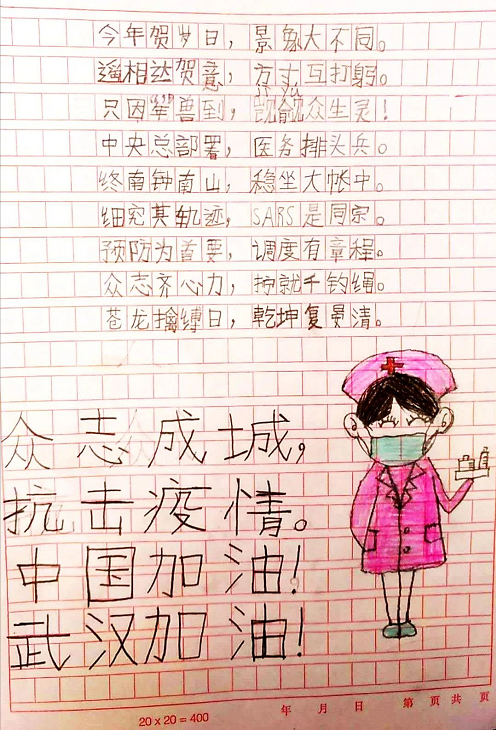 今年贺岁日，景象大不同。
遥相达贺意，方丈互打躬。
jì yú
只因兽到，觊觎众生灵！
中央总部署，医务排头兵。
终南钟南山，稳坐大帐中。
细究其轨迹，SARS是同宗。
预防为首要，调度有章程。
众志齐心力，拧就千钧绳。
苍龙擒缚日，乾坤复晏清。
众志成城，
抗击疫情。
中国加油！
武汉加油！
20×20=400 年 月 日 第 页 共 页